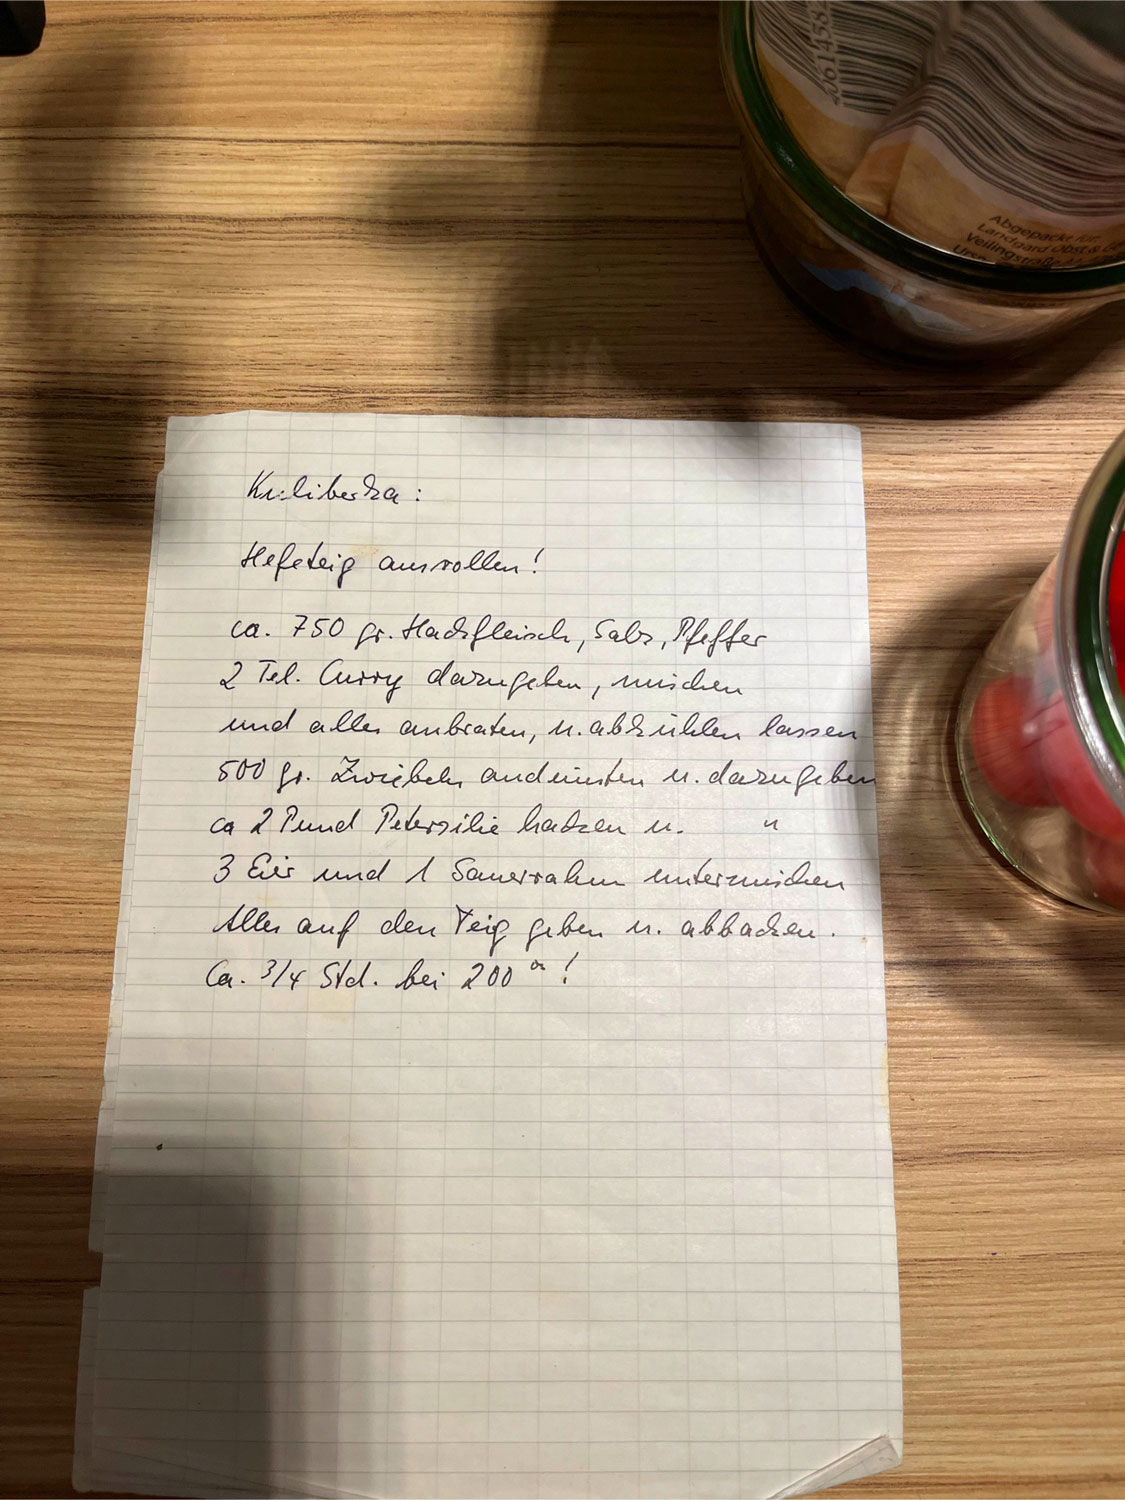 2614582
Abgepackt für:
Landgard Obst &
Veilingstraße
Urspr
Kulibeska:
Hefeteig ausrollen!
ca. 750 gr. Hackfleisch, Salz, Pfeffer
2 Tel. Curry dazugeben, mischen
und alles anbraten, u. abkühlen lassen
500 gr. Zwiebeln andünsten u. dazugeben
ca 2 Bund Petersilie hacken u. "
3 Eier und 1 Sauerrahm untermischen
Alles auf den Teig geben u. abbacken.
Ca. 3/4 Std. bei 200° !